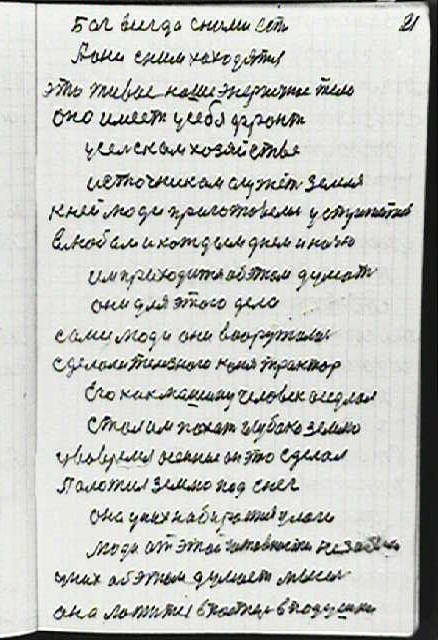 21
Бог всегда сними есть
Они сним находятся
это живое наше энергичное тело
оно имеет у себя фронт
у сельском хозяйстве
источником служит земля
к ней люди приготовелы уступится
в любом и каждым днем и ночю
им приходится об этом думать
они для этого дела
сами люди они вооружились
сделали железного коня трактор
Его как машину человек оседлал
стал им пахат глубоко землю
у вовремя осенние он это сделал
положил землю под снег
она у них набирается влаги
люди от этой готовности
у них об этом думает мысли
она ложится в постел в подушки